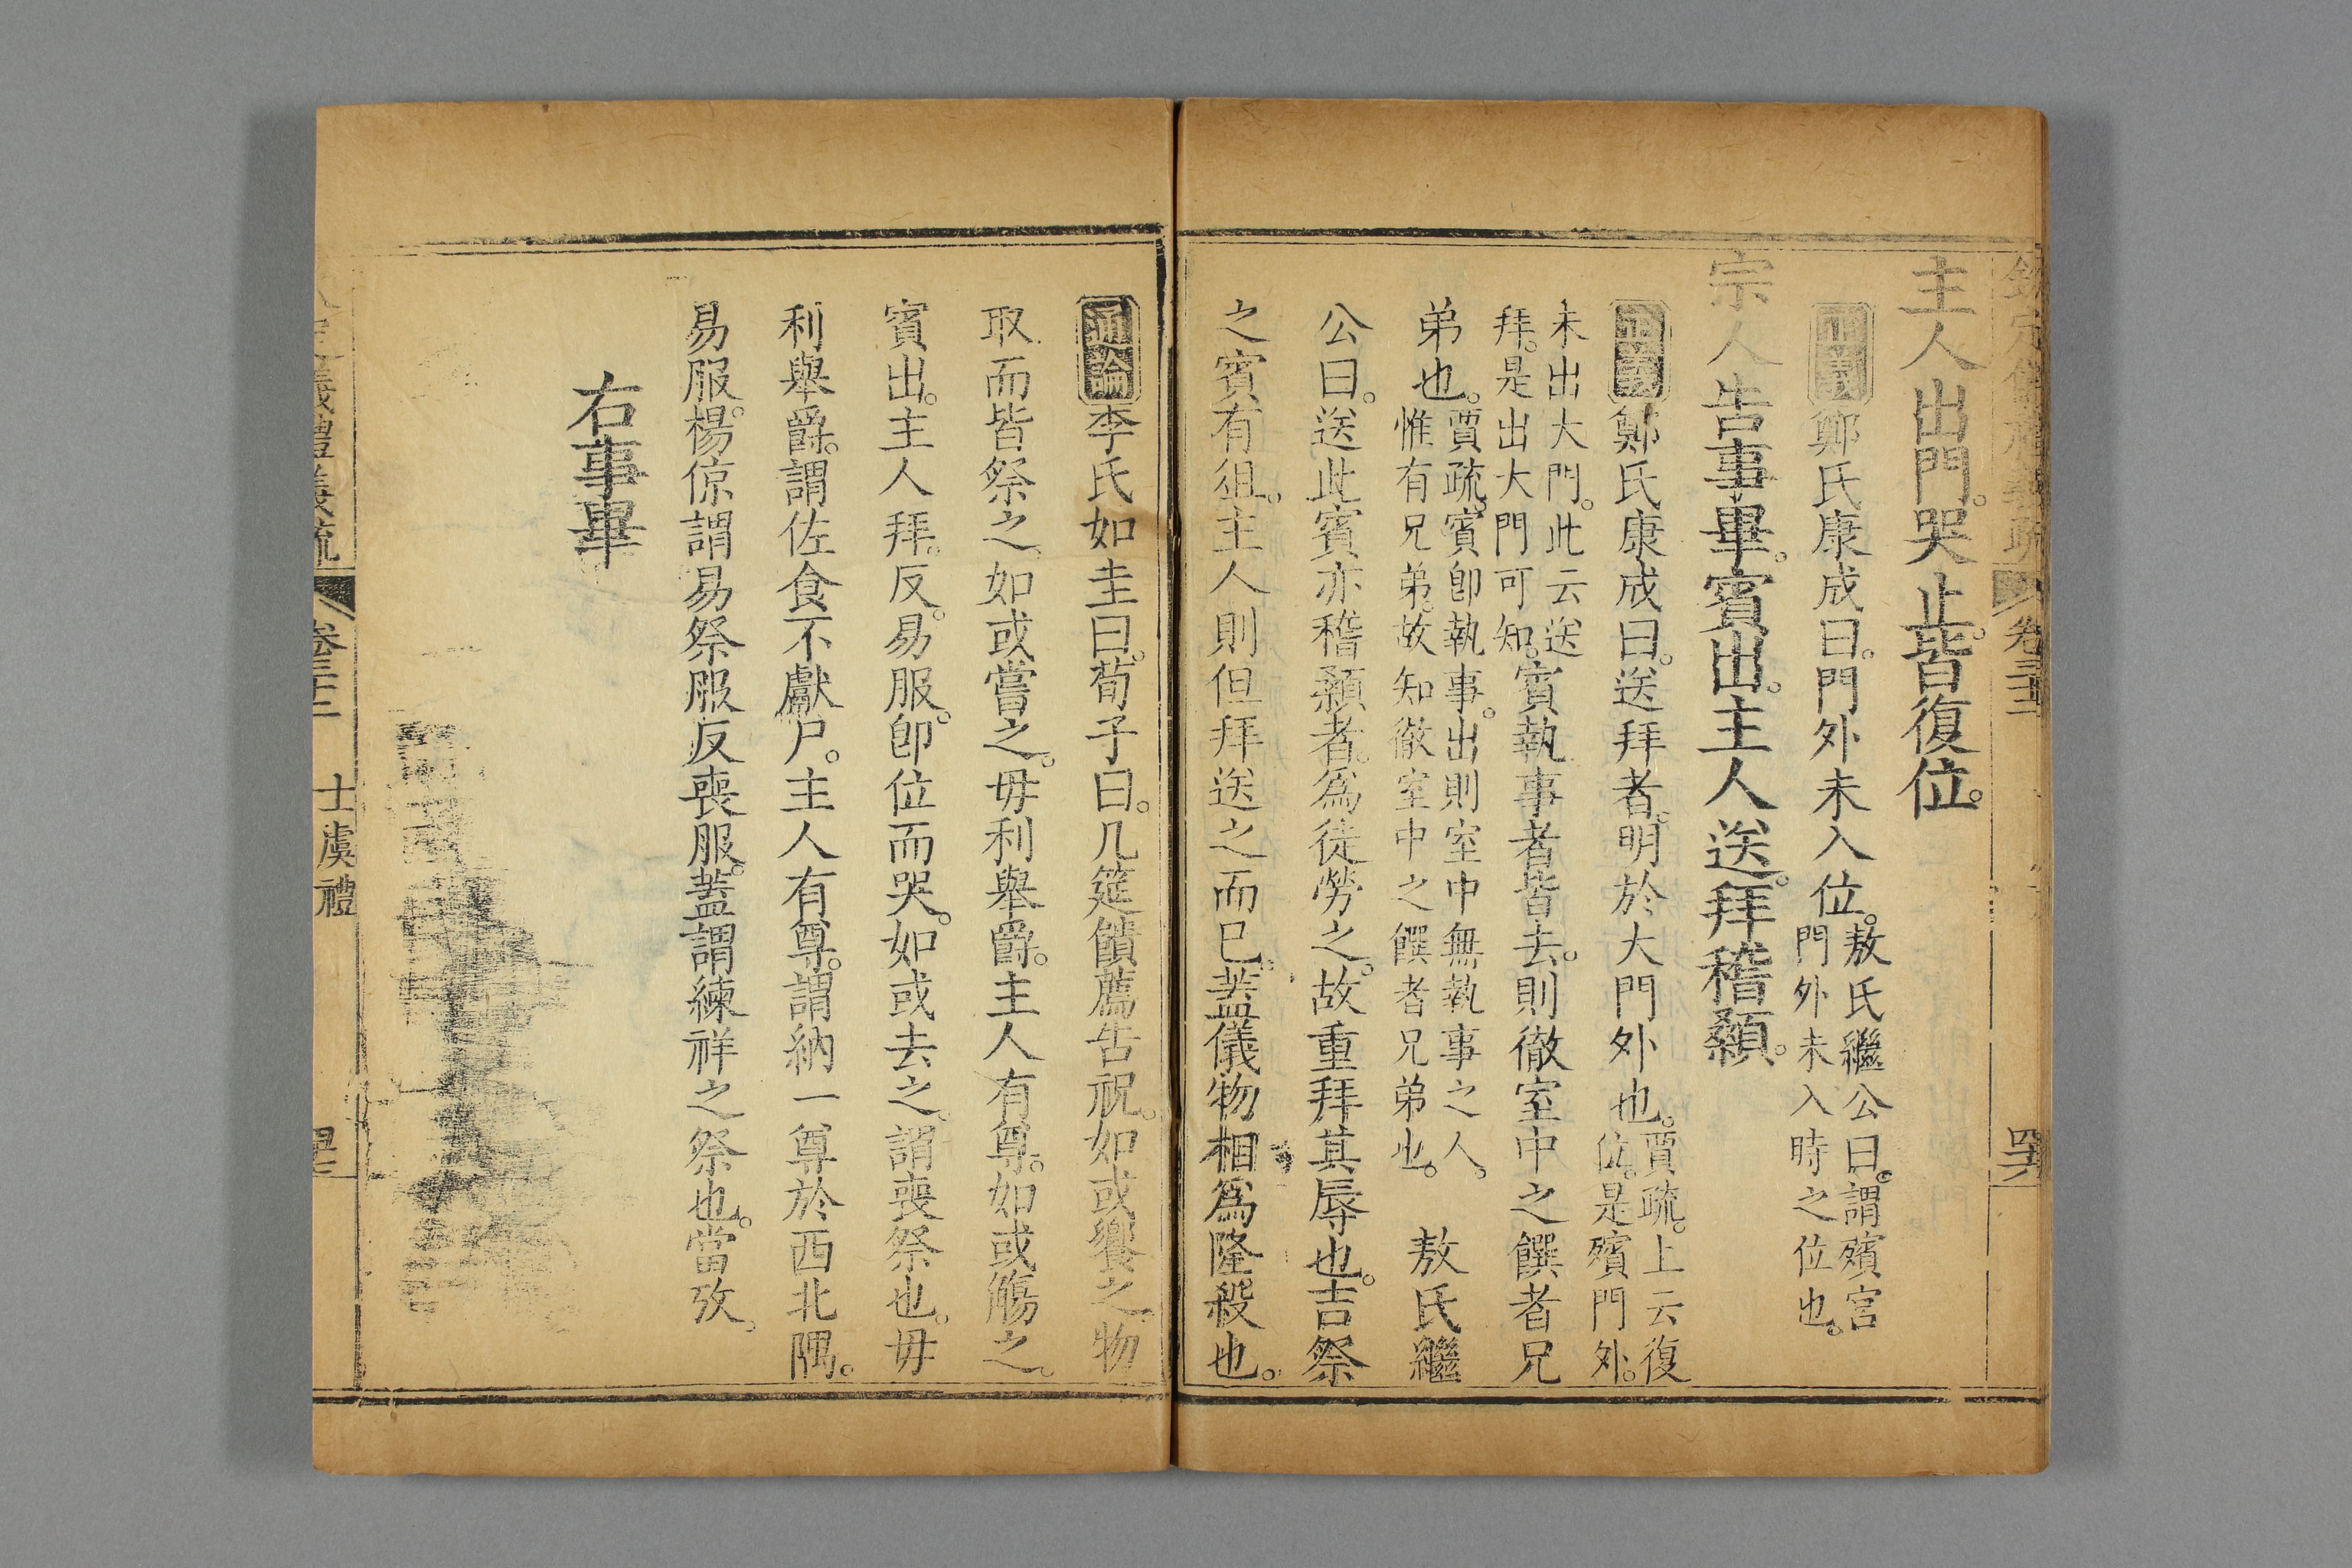 欽定儀禮義疏 卷三十二 四六
主人出門。哭止。皆復位。
正義鄭氏康成曰。門外未入位。敖氏繼公曰。謂殯宮
門外未入時之位也。
宗人告事畢。賓出。主人送。拜稽顙。
正義鄭氏康成曰。送拜者。明於大門外也。賈疏。上云復
位。是殯門外。
未出大門。此云送
拜。是出大門可知。賓執事者皆去。則徹室中之饌者兄
弟也。賈疏。賓卽執事。出則室中無執事之人。
惟有兄弟。故知徹室中之饌者兄弟也。敖氏繼
公曰。送此賓亦稽顙者。爲徒勞之。故重拜其辱也。吉祭
之賓有俎。主人則但拜送之而已。蓋儀物相爲隆殺也。
通論李氏如圭曰。荀子曰。几筵饋薦告祝。如或饗之。物
取而皆祭之。如或嘗之。毋利舉爵。主人有尊。如或觴之。
賓出。主人拜。反。易服。卽位而哭。如或去之。謂喪祭也。毋
利舉爵。謂佐食不獻尸。主人有尊。謂納一尊於西北隅。
易服。楊倞謂易祭服反喪服。蓋謂練祥之祭也。當攷。
右事畢
儀禮義疏 卷三十二 士虞禮